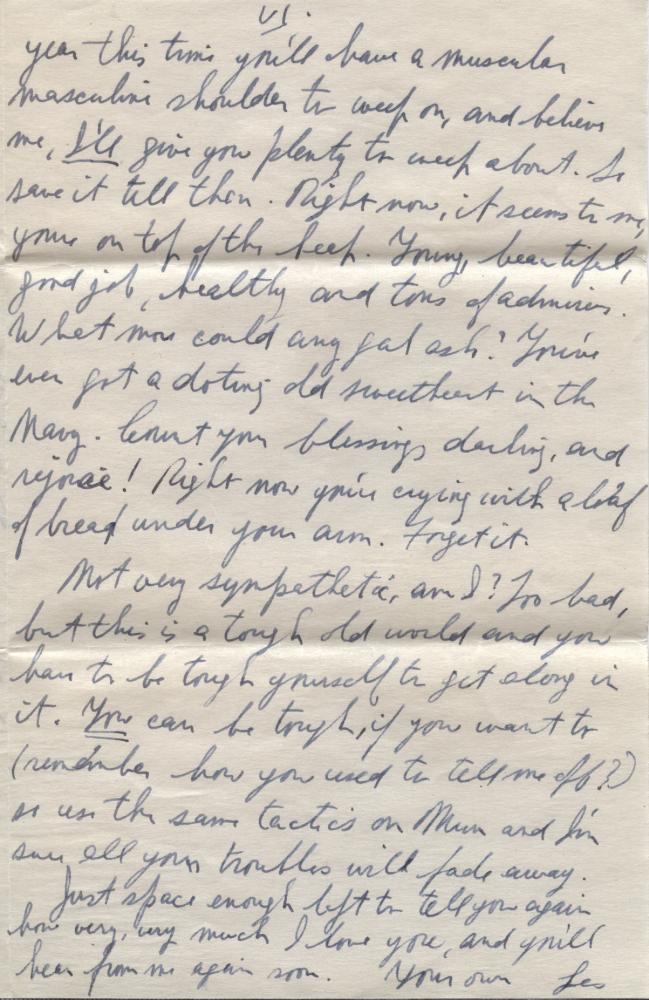 VI.
year this time you'll have a muscular
masculine shoulder to weep on, and believe
me, I'll give you plenty to weep about. So
save it till then. Right now, it seems to me,
you're on top of the heap. Young, beautiful,
good job, healthy and tons of admirers.
What more could any gal ask? You've
even got a doting old sweetheart in the
Navy. Count your blessings darling, and
rejoice! Right now you're crying with a loaf
of bread under your arm. Forget it.
Not very sympathetic, am I? Too bad,
but this is a tough old world and you
have to be tough yourself to get along in
it. You can be tough, if you want to
(remember how you used to tell me off?)
so use the same tactics on Mum and I'm
sure all your troubles will fade away.
Just space enough left to tell you again
how very, very much I love you, and you'll
hear from me again soon. Your own Les